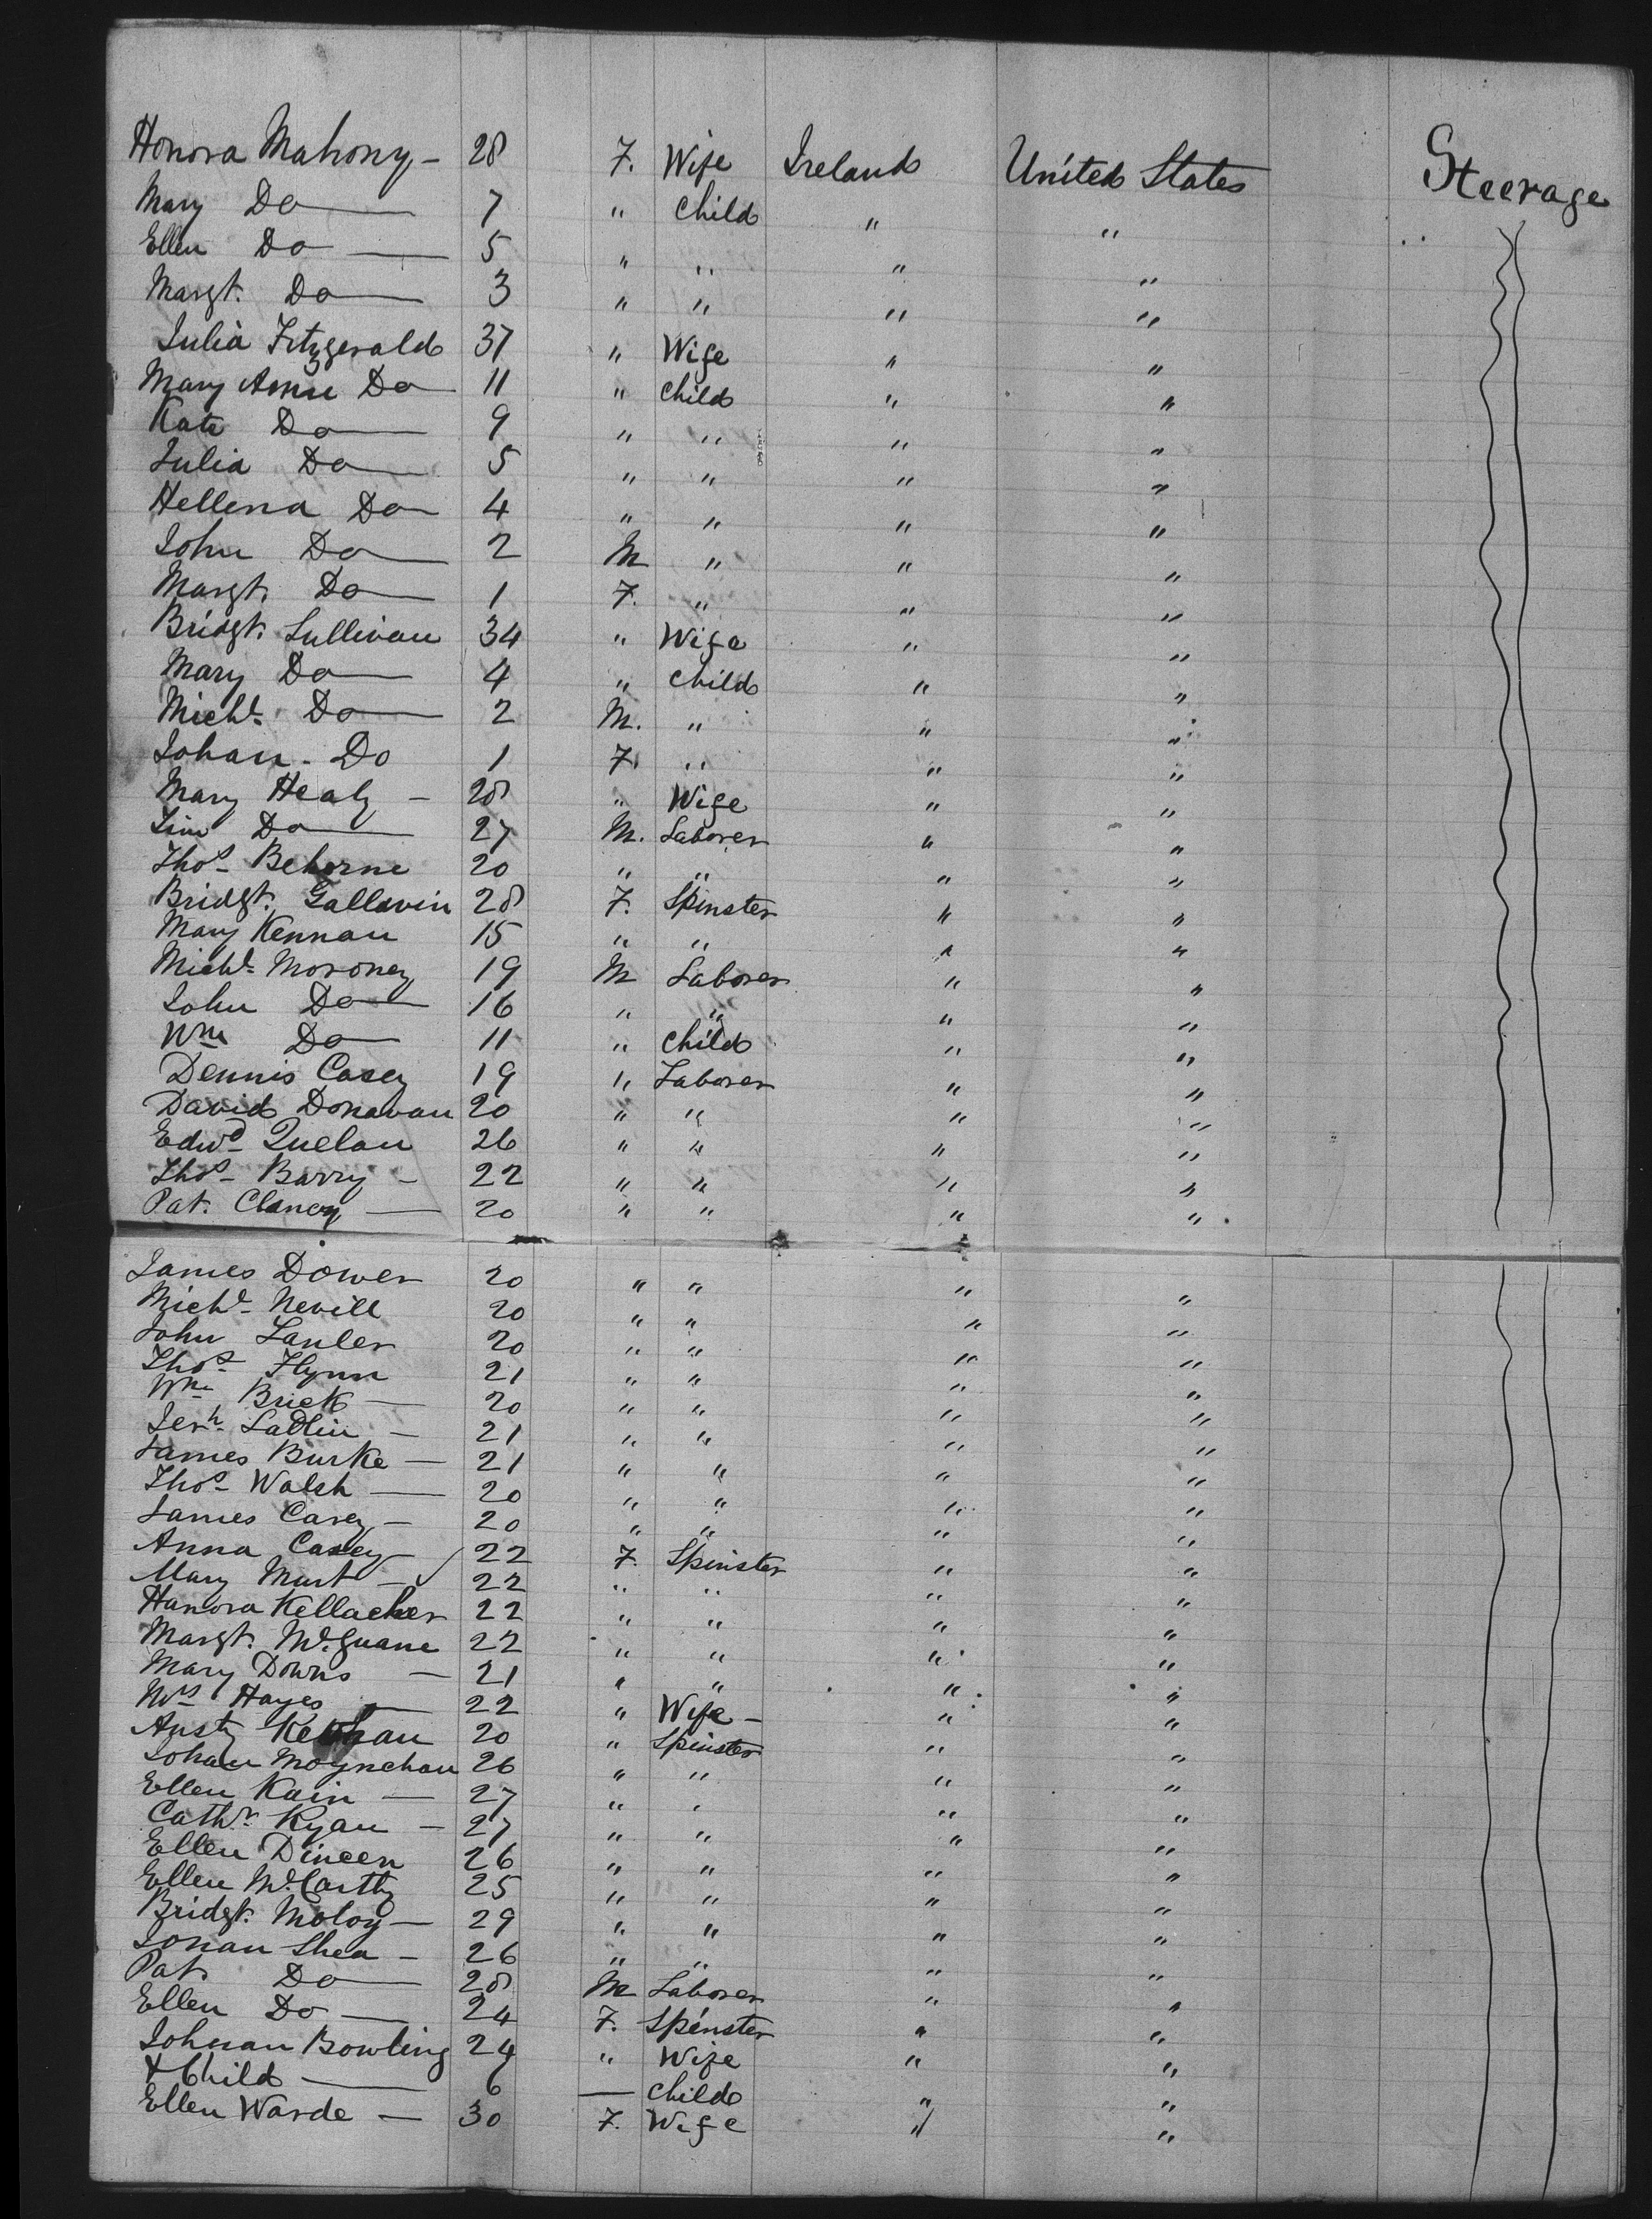 Honora Mahony - 28 F. Wife Ireland United States Steerage
Mary Do 7 " Child " "
Ellen Do 5 " " " "
Margt. Do 3 " " " "
Julia Fitzgerald 37 " Wife " "
Mary Anne Do 11 " Child " "
Kate Do 9 " " " "
Julia Do 5 " " " "
Hellena Do 4 " " " "
John Do 2 M " " "
Margt. Do 1 F. " " "
Bridgt. Sullivan 34 " Wife " "
Mary Do 4 " Child " "
Michl. Do 2 M. " " "
Johan - Do 1 F. " " "
Mary Healy - 28 " Wife " "
Do 27 M. Laborer " "
Thos. Beherne 20 " " " "
Bridgt. Gallavin 28 F. Spinster " "
Mary Kennan 15 " " " "
Michl. Moroney 19 M Laborer " "
John Do 16 " " " "
Wm Do 11 " Child " "
Dennis Casey 19 " Laborer " "
David Donavan 20 " " " "
Edwd. Quelan 26 " " " "
Thos. Barry - 22 " " " "
Pat. Clancy - 20 " " " "
James Dower 20 " " " "
Michl. Nevill 20 " " " "
John Lauler 20 " " " "
Thos. Flynn 21 " " " "
Wm Brick - 20 " " " "
Jerh. - 21 " " " "
James Burke - 21 " " " "
Thos. Walsh - 20 " " " "
James Carey - 20 " " " "
Anna Casey - 22 F. Spinster " "
Mary - 22 " " " "
Hanora Kellacher 22 " " " "
Margt. McGuane 22 " " " "
Mary Downs - 21 " " " "
Mrs Hayes - 22 " Wife - " "
Austy 20 " Spinster " "
Johan Moynehan 26 " " " "
Ellen Kain - 27 " " " "
Cathn. Ryan - 27 " " " "
Ellen Dineen 26 " " " "
Ellen McCarthy 25 " " " "
Bridgt. Moloy - 29 " " " "
Johan Shea - 26 " " " "
Pat. Do 28 M Laborer " "
Ellen Do 24 F. Spinster " "
Johnan Bowling 24 " Wife " "
& Child 6 — Child " "
Ellen Warde - 30 F. Wife " "